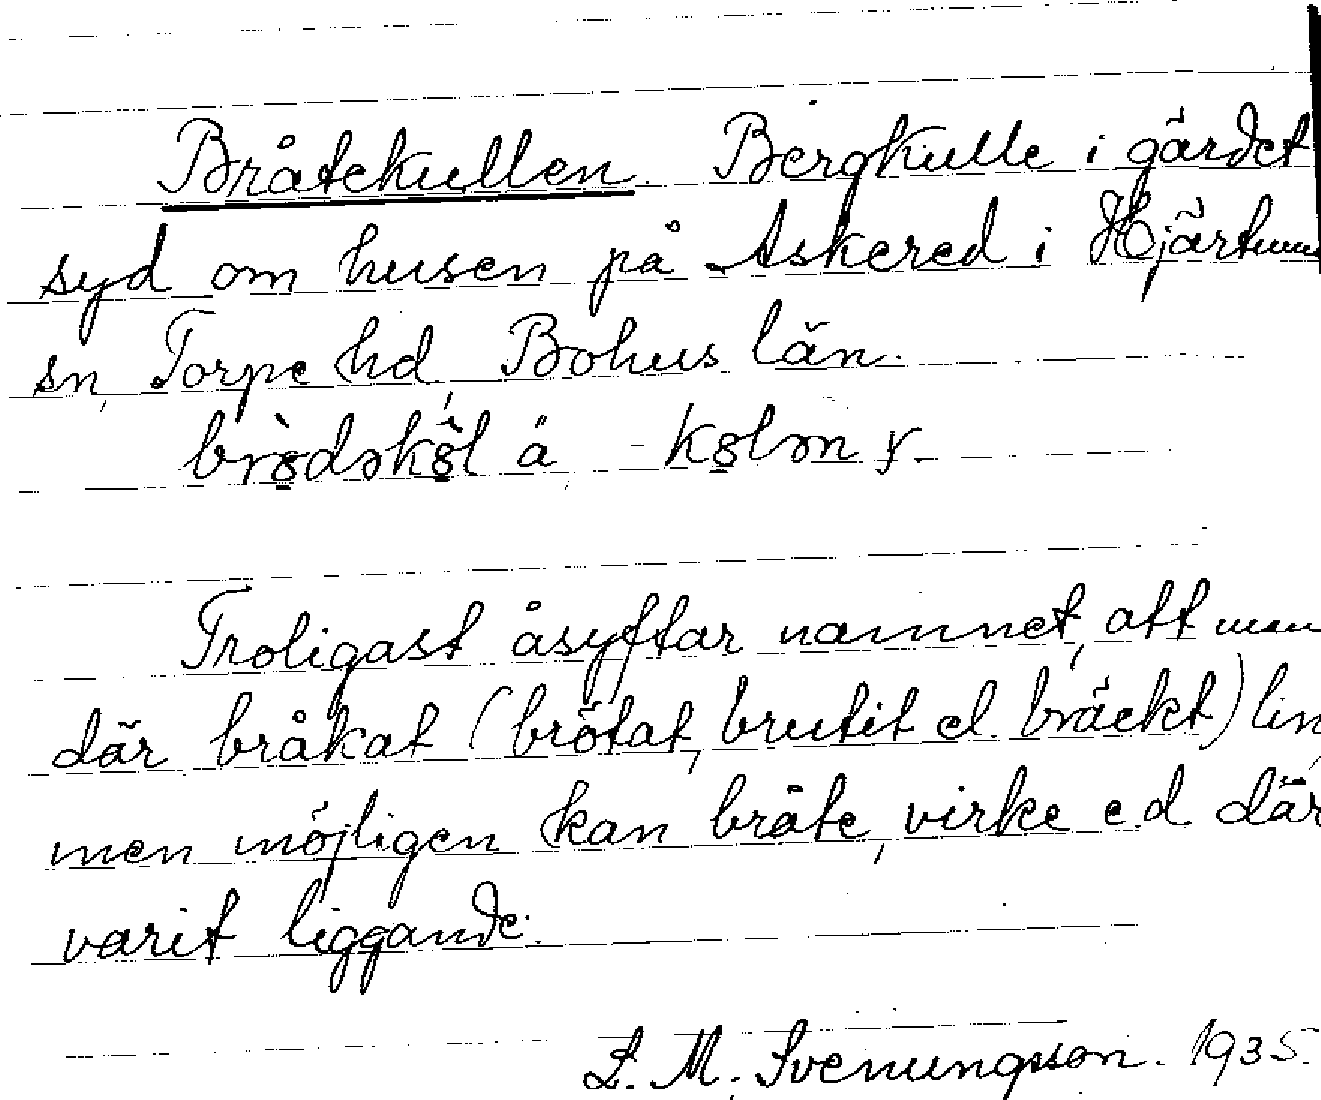 Bråtekullen. Bergkulle i gärdet
syd om husen på Askered i Hjärtums
sn, Torpe hd, Bohus län.
Troligast åsyftar namnet, att man
där bråkat (brötat, brutit el. bräckt) lin,
men möjligen kan bråte, virke e.d. där
varit liggande.
L. M. Svenungsson. 1935.